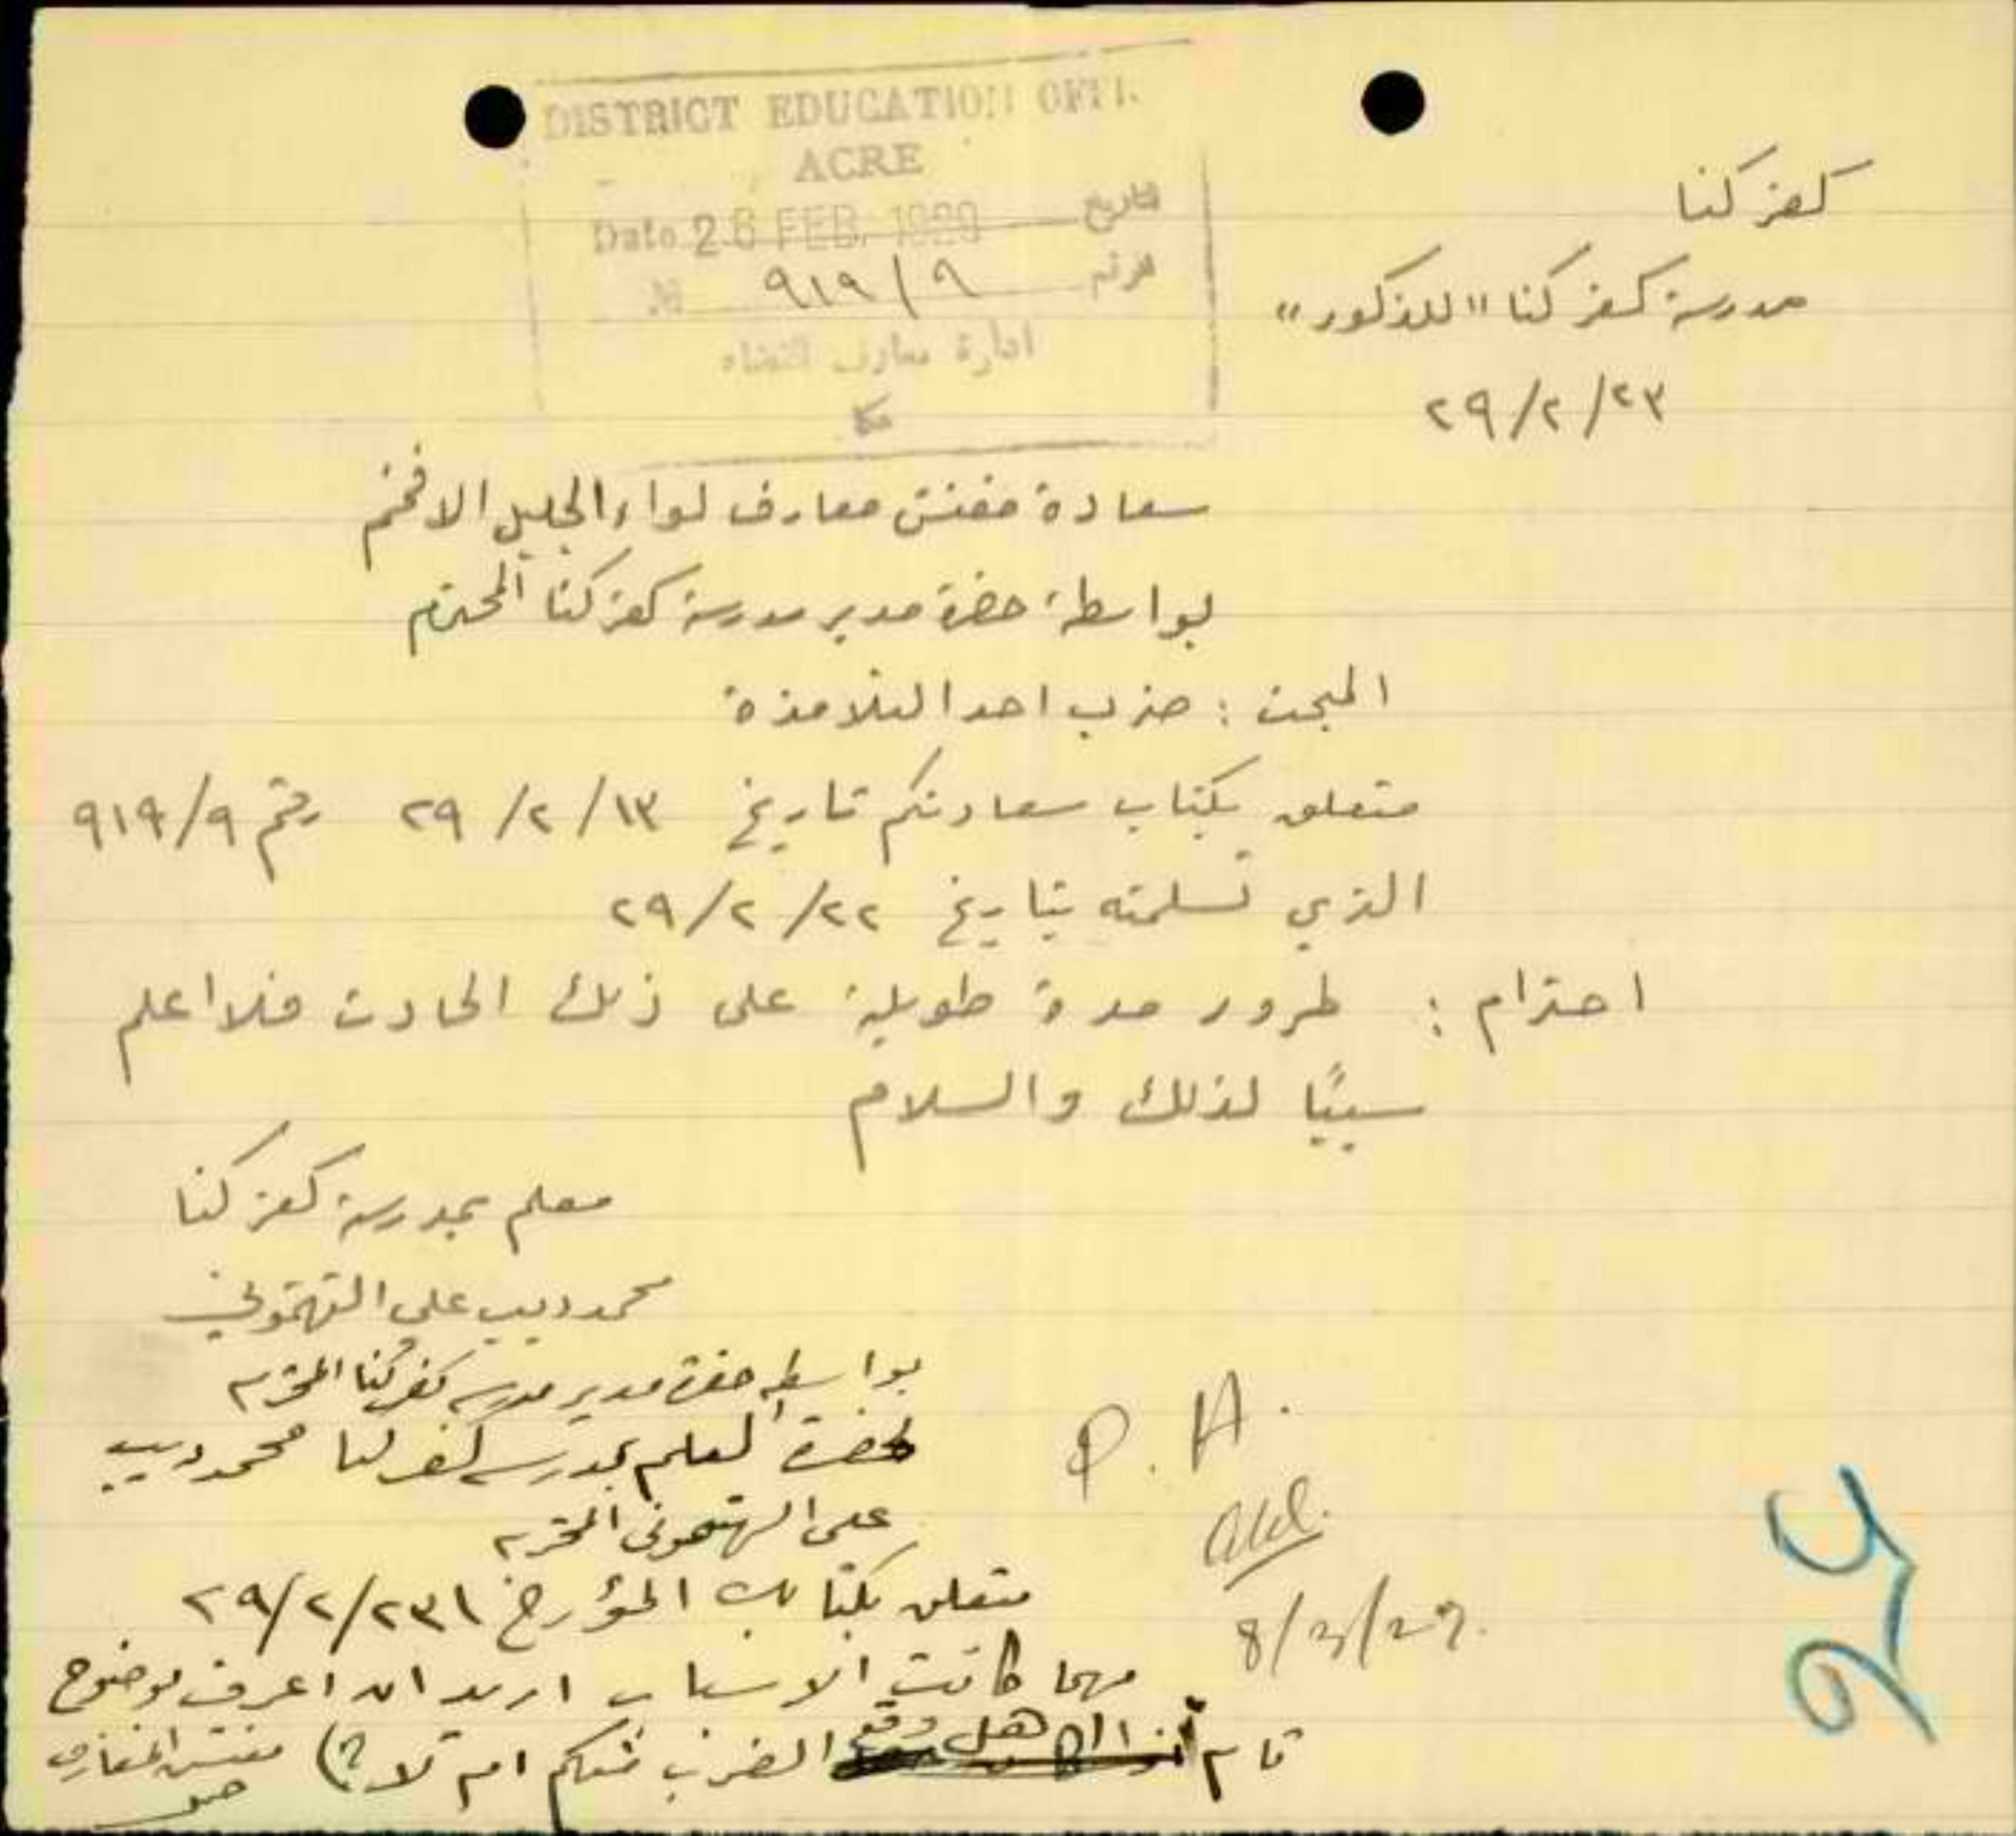 DISTRICT EDUCATION OFFI.
ACRE
Date 26 FEB. 1929 تاريخ
№ ٩١٩/٩ الرقم
ادارة معارف القضاء
عكا
كفر كنا
مدرسة كفر كنا "للذكور"
٢٩/٢/٢٣
سعادة مفتش معارف لواء الجليل الافخم
بواسطة حضرة مدير مدرسة كفر كنا المحترم
المبحث : ضرب احد التلامذة
متعلق بكتاب سعادتكم تاريخ ٢٩/٢/١٣ رقم ٩١٩/٩
الذي تسلمته بتاريخ ٢٩/٢/٢٢
احترام : لمرور مدة طويلة على ذلك الحادث فلا اعلم
سببًا لذلك والسلام
معلم بمدرسة كفر كنا
محمد ديب علي التهتموني
بواسطة حضرة مدير مدرسة كفر كنا المحترم
لحضرة المعلم بمدرسة كفر كنا محمد ديب
علي التهتموني المحترم
متعلق بكتابك المؤرخ ٢٩/٢/٢٣
مهما كانت الاسباب اريد ان اعرف بوضوح
تام هل وقع الضرب منكم ام لا؟) مفتش المعارف
P. A.
8/3/29.
24